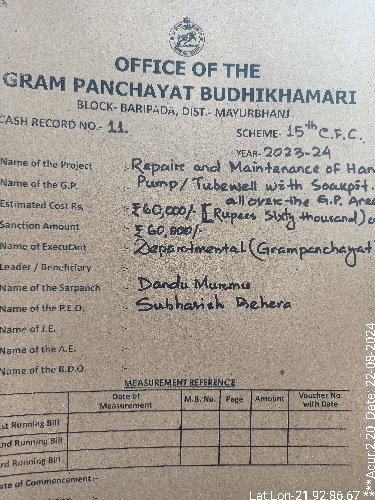 OFFICE OF THE
GRAM PANCHAYAT BUDHIKHAMARI
BLOCK- BARIPADA, DIST.- MAYURBHANJ
CASH RECORD NO.- 11.
SCHEME- 15th C.F.C.
YEAR- 2023-24
Name of the Project :- Repairs and Maintenance of Han
Name of the G.P. :- Pump/Tubewell with Soakpit.
all over the G.P. Area
Estimated Cost Rs. :- ₹60,000/- [Rupees Sixty thousand) o
Sanction Amount :- ₹60,000/-
Name of Executant :- Departmental (Grampanchayat)
Leader / Beneficiary
Name of the Sarpanch :- Dandu Murmu
Name of the P.E.O. :- Subhasish Behera
Name of J.E. :-
Name of the A.E. :-
Name of the B.D.O. :-
MEASUREMENT REFERENCE
Date of Measurement M.B. No. Page Amount Voucher No. with Date
st Running Bill
nd Running Bill
rd Running Bill
ate of Commencement:-
Lat:Lon-21.92:86.67
***Acur:2.20 Date: 22-08-2024